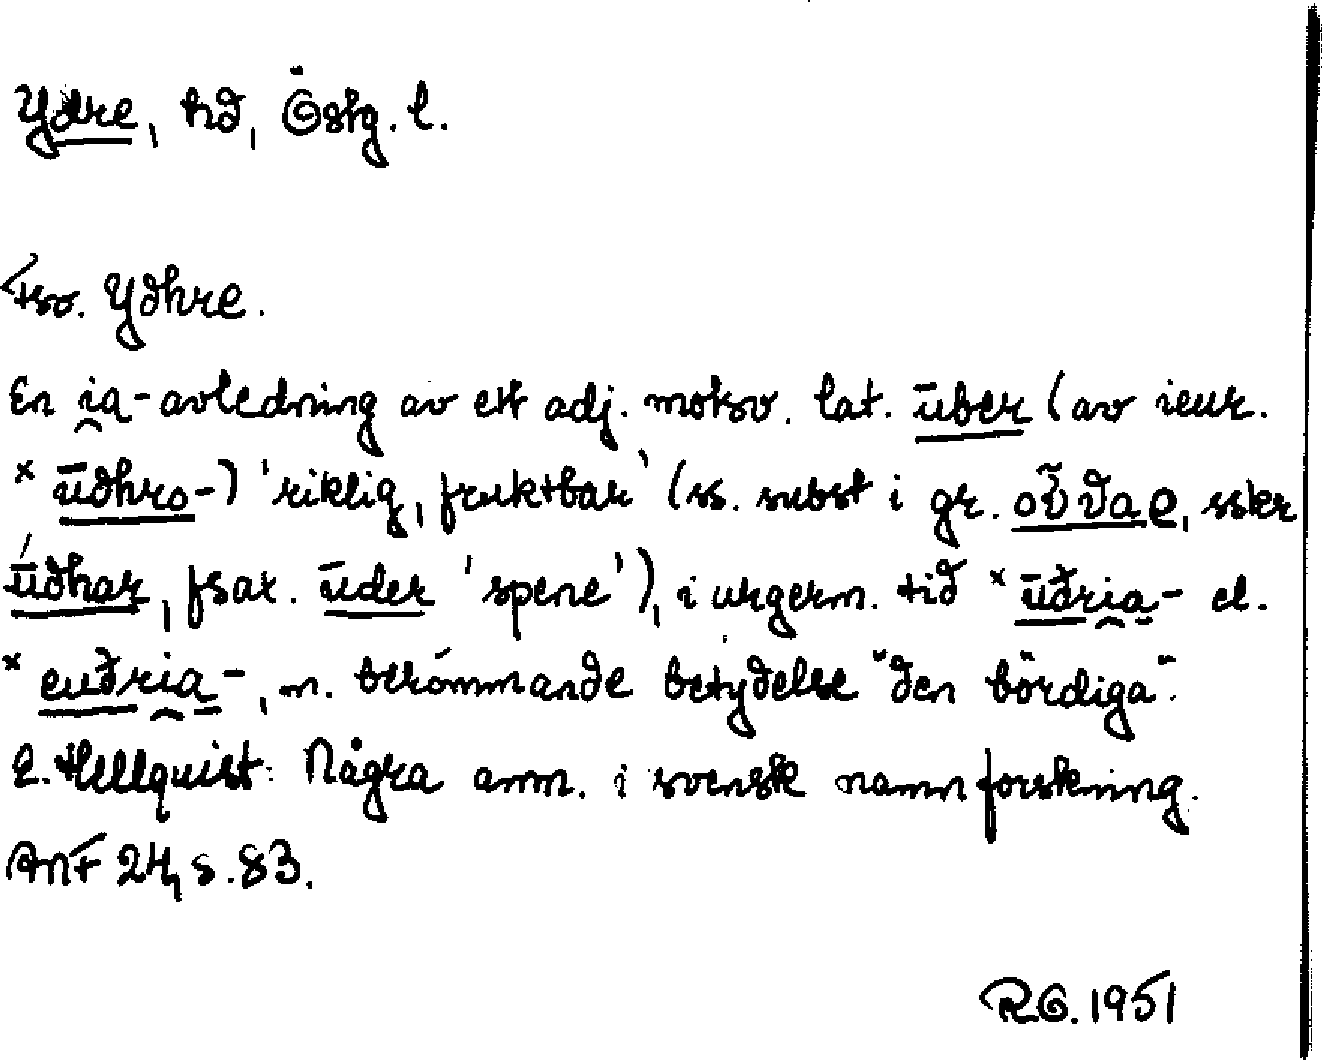 Ydre, hd, Östg. l.
Fsv. Ydhre.
En i̯a-avledning av ett adj. motsv. lat. ūber (av ieur.
* ūdhro-) 'riklig, fruktbar' (ss. subst i gr. οὖϑαρ, sskr
ū́dhar, fsax. ūder 'spene'), i urgerm. tid * ūđri̯a- el.
* euđri̯a-, m. berömmande betydelse "den bördiga".
E. Hellquist: Några anm. i svensk namnforskning.
ANF 24, s. 83.
RG. 1951